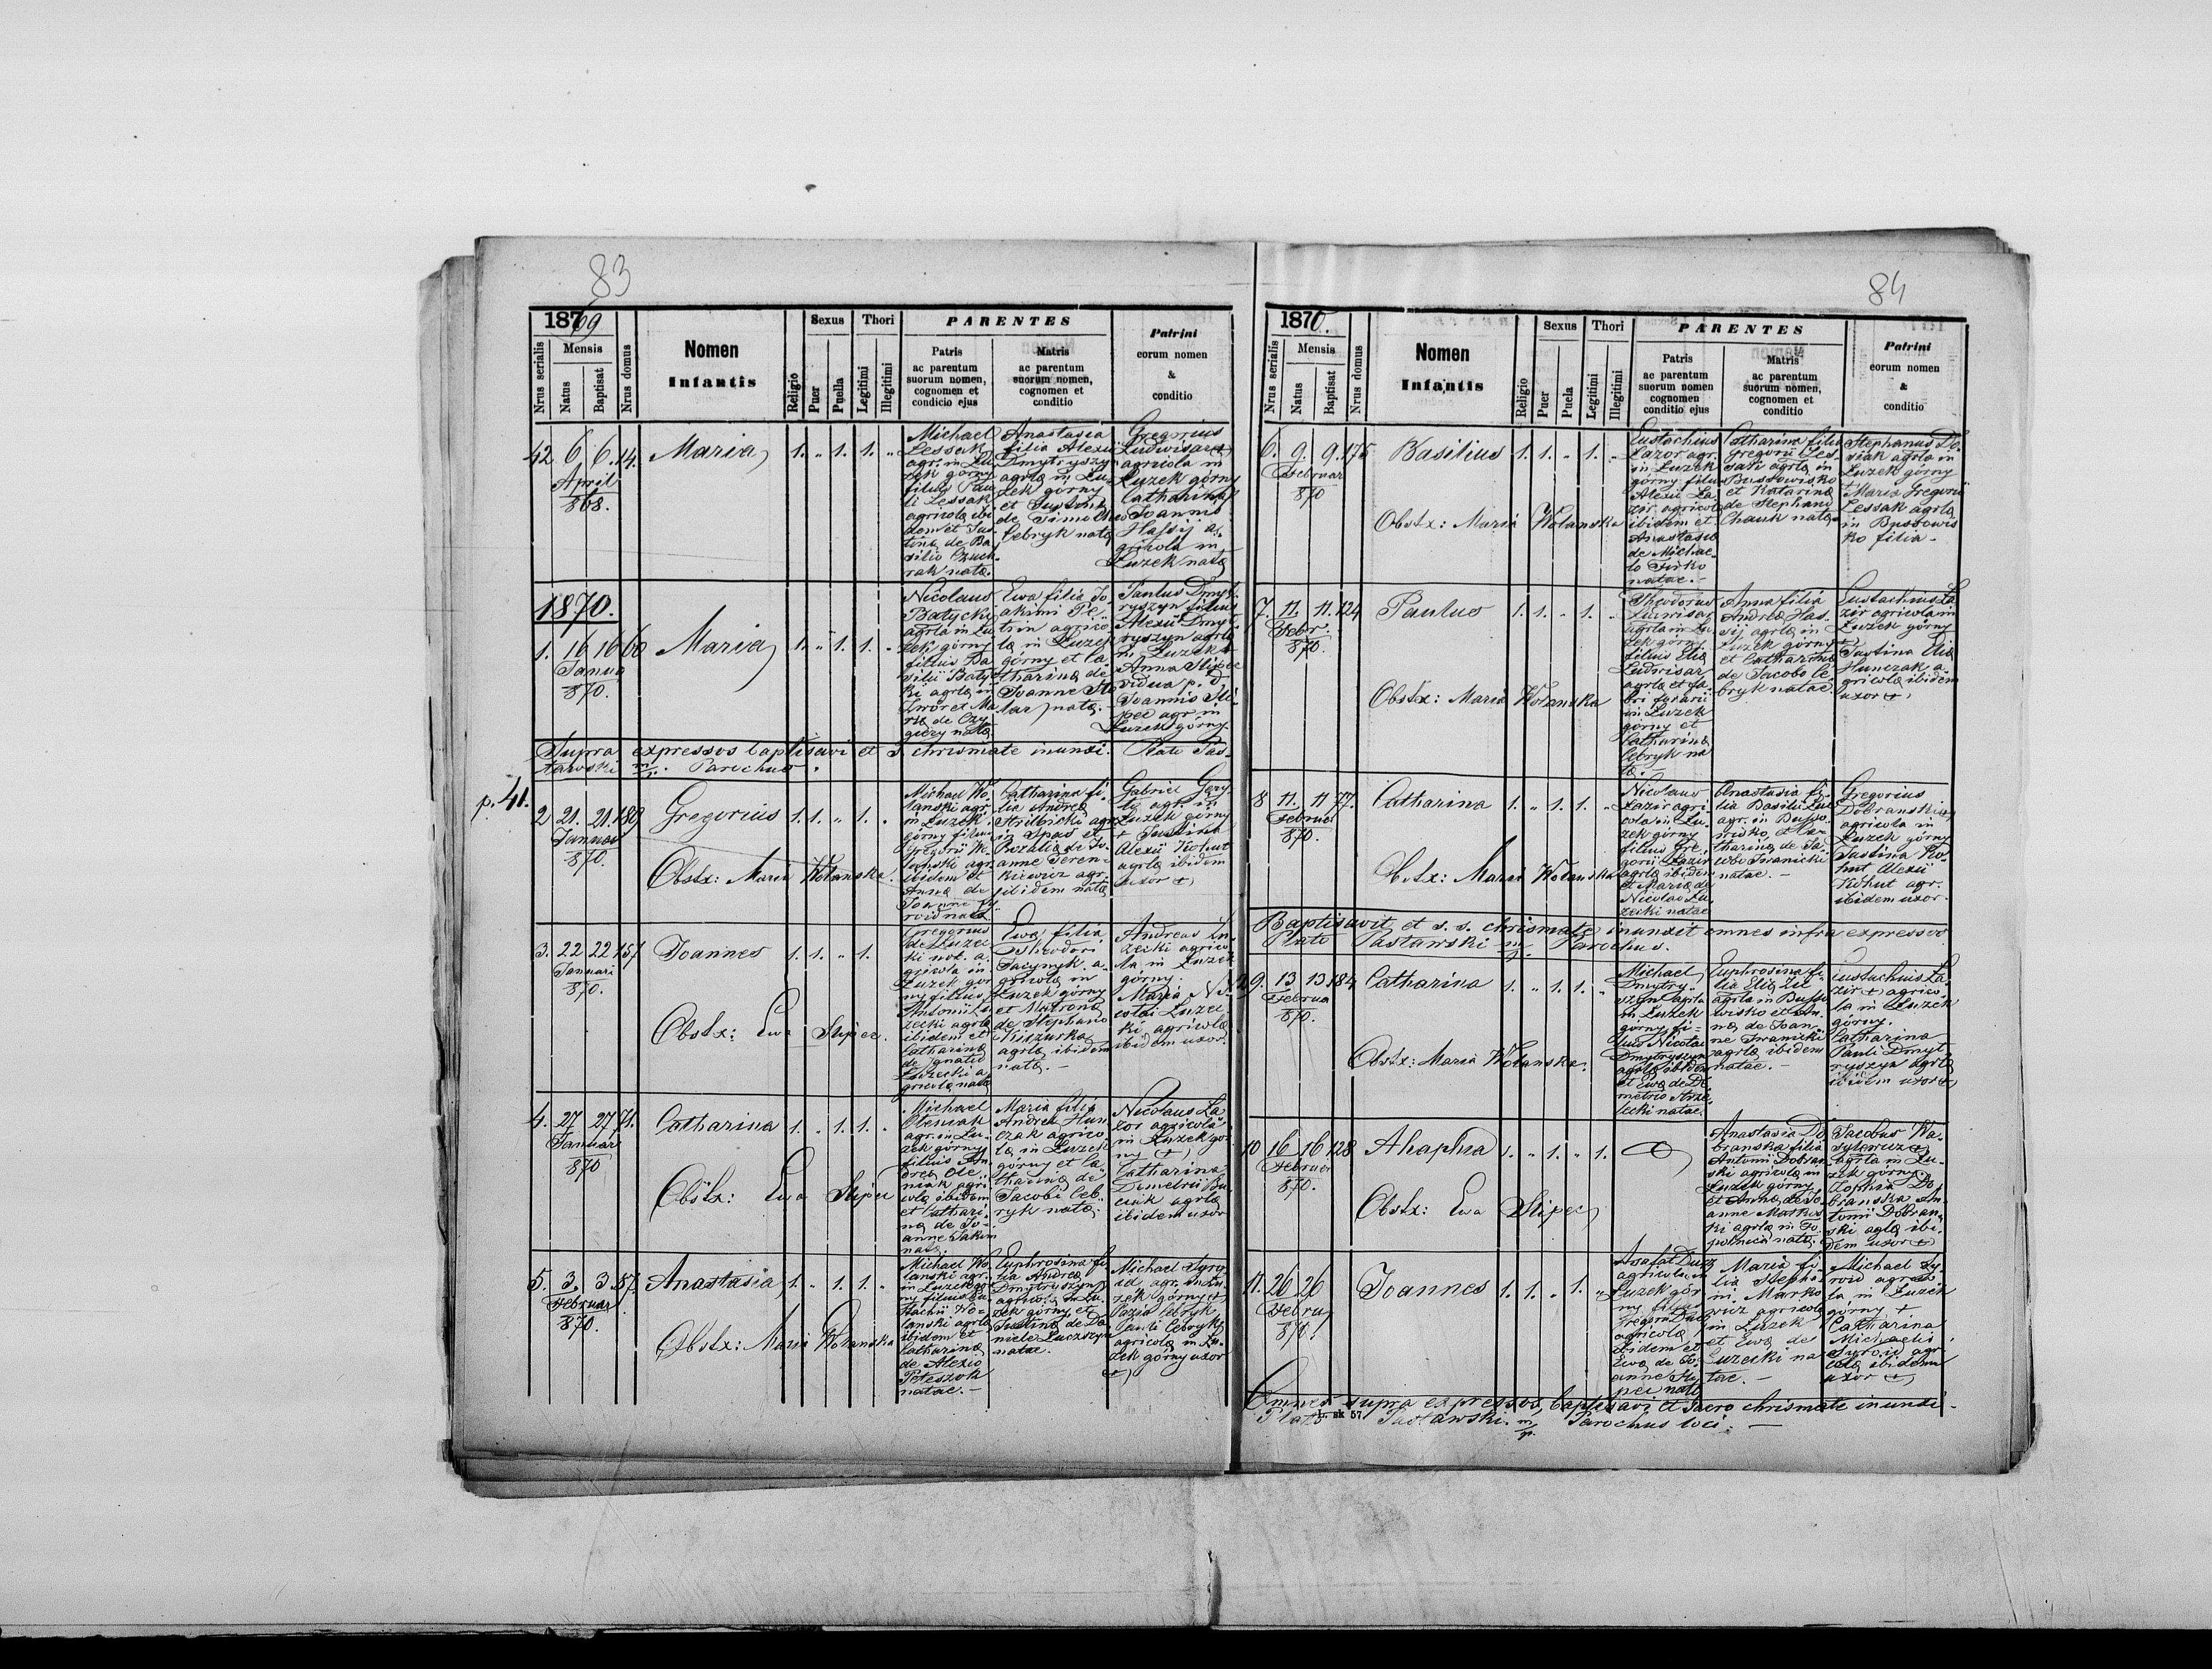 83
1869
Sexus
Thori
PARENTES
Patrini
eorum nomen
&
conditio
Nrus serialis
Mensis
Natus
Baptisat
Nrus domus
Nomen
Infantis
Religio
Puer
Puella
Legitimi
Illegitimi
Patris
ac parentum
suorum nomen,
cognomen et
condicio ejus
Matris
ac parentum
suorum nomen,
cognomen et
conditio
42 6 6. 14. Maria 1. " 1. 1. "
April
868.
Michael
Lessak
agr. in Lu
zek górny
filius Pau
li Lessak
agricolae ibi
dem et Jus
tina de Ba
silio
natae.
Anastasia
filia Alexii
Dmytryszyn
agrlae in Lu
zek górny
et Justina
de Timoth
Cebryk natae
Gregorius
Ludwisar
agricola in
Luzek górny
Catharina
Joannis
Hasij a
gricola in
Luzek
1870.
1. 16 16 60 Maria 1. " 1. 1. "
Janua
870.
Nicolaus
Batycki
agrla in Lu
zek górny
filius Ba
silii Baty
ki agrlae in
Ewa filia Jo
akimi Pe
trin agrico
lae in Luzek
górny et Ca
tharina de
Joanne
natae.
Paulus Dmyt
ryszyn filius
Alexii Dmyt
ryszyn agrlae
in Luzek +
Anna Slipec
vidua p. d.
Joannis Sli
pec agr. in
Luzek górny.
Supra expressos baptisavi et S. chrismate inunxi. Plato Pas
tawski m/p. Parochus.
p. 41.
2 21. 21. 189 Gregorius 1. 1. " 1. .
Januar
870.
Obstx: Maria Wołanska.
Michael Wo
łanski agr
in Luzek
górny filius
Gregorii Wo
łanski agr.
ibidem et
Anna de
Joanne
Catharina fi
lia Andreae
Strilbicki agr
in Spas et
Rozalia de Jo
anne Teren
kiewicz agr.
ibidem natae
Gabriel
agr. in
Luzek górny
+ Justina
Alexii Kohut
agrlae ibidem
uxor
3. 22 22 157 Joannes 1. 1. " 1.
Januari
870.
Obstx: Ewa Slipec.
Gregorius
de Luzec
ki not. a
gricola in
Luzek gór
ny filius
Antonii Lu
zecki agrlae
ibidem et
Catharina
de Ignatio
Luzecki a
gricola natae
Ewa filia
Theodori
Jacynyk a
gricolae in
Luzek górny
et Matrona
de Stephano
agrlae ibidem
natae. -
Andreas Lu
zecki agrico
la in Luzek
górny.
Maria Ni
colai Luzec
ki agricolae
ibidem uxor.
4. 27 27 71. Catharina 1. . 1. 1. .
Januar
870
Obstx: Ewa Slipec
Michael
Oleniak
agr. in Lu
zek górny
filius An
dreae Ole
niak agri
colae ibidem
et Cathari
na de Jo
anne Jakim
natae.
Maria filia
Andreae Hun
czak agrico
lae in Luzek
górny et Ca
tharina de
Jacobi Ceb
ryk natae.
Nicolaus La
zor agricola
in Luzek gó
ny
Catharina
Demetrii
agrlae
ibidem uxor
5. 3. 3. 87. Anastasia 1. " 1. 1. "
Februar
870.
Obstx: Maria Wołanska
Michael Wo
łanski agr.
in Luzek gór
ny filius Eu
stachii Wo
łanski agrlae
ibidem et
Catharina
de Alexio
Peteszok
natae. -
Euphrosina fi
lia Andreae
Dmytryszyn
agricol. in Lu
zek górny et
Justina de Da
niele Luczszyn
natae.
Michael Syro
id agr. in Lu
zek górny +
Cebryk
Pauli Cebryk
agricolae in Lu
zek górny uxor
84
1870.
Sexus
Thori
PARENTES
Patrini
eorum nomen
&
conditio
Nrus serialis
Mensis
Natus
Baptisat
Nrus domus
Nomen
Infantis
Religio
Puer
Puela
Legitimi
Illegitimi
Patris
ac parentum
suorum nomen
cognomen
conditio ejus
Matris
ac parentum
suorum nomen,
cognomen et
conditio
6. 9. 9. 175 Basilius 1. 1. " 1. "
Februar
870
Obstx: Maria Wołanska
Eustachius
Lazor agr.
in Luzek
górny filius
Alexii La
zir agricol
ibidem et
Anastasia
de Michae
lo
natae. -
Catharina filia
Gregorii Les
sak agrlae in
Bussowisko
et Katarina
de Stephano
natae
Stephanus
agrla in
Luzek górny
Maria Gregorii
Lessak agrlae
in Bussowis
ko filia -
7. 11. 11. 124 Paulus 1. 1. " 1. "
Febr
870.
Obstx: Maria Wołanska
Theodorus
Ludwisar
agrla in Lu
zek górny
filius Eliae
Ludwisar
agrlae et fa
bri
in Luzek
górny et
Catharina
Cebryk na
tae. -
Anna filia
Andreae Has
sij agrlae in
Luzek górny
et Catharina
de Jacobo Ce
bryk natae
Eustachius La
zir agricola in
Luzek górny
Justina Eliae
Hunczak a
gricolae ibidem
uxor
8 11. 11 77. Catharina 1. " 1. 1. "
Februar
870.
Obstx: Maria Wołanska
Nicolaus
Lazir agri
cola in Lu
zek górny
filius Gre
gorii Lazir
agrlae ibidem
et Maria de
Nicolao Lu
zecki natae
Anastasia fi
lia Basilii
agr. in Busso
wisko, et Ca
tharina de Ja
cobo Iwanicki
natae. -
Gregorius
Dobranski
agricola in
Luzek górny
Justina Ko
hut Alexii
Kohut agr.
ibidem uxor.
Baptisavit et s. s. chrismate inunxit omnes infra expressos
Plato Pastawski m/p. Parochus.
9. 13 13 184 Catharina 1. " 1. 1. "
Februa
870.
Obstx: Maria Wołanska.
Michael
Dmytry
szyn agrla
in Luzek
górny fi=
lius Nicolai
Dmytryszyn
agrlae ibidem
et Ewa de De
metrio
natae.
Euphrosina fi
lia Eliae
agrlae in Busso
wisko et An
na de Joan
ne Iwanicki
agrlae ibidem
natae. -
Eustachius La
zir agrico
la in Luzek
górny.
Catharina
Pauli Dmyt
ryszyn agrlae
ibidem uxor
10 16 16 128 Ahaphia 1. " 1. " 1.
Februar
870.
Obstx: Ewa Slipec
Anastasia Do
branska filia
Antonii Dobran
ski agricolae in
Luzek górny
et Anna de Jo
anne
agrlae in To
polnica natae.
Jacobus
agrla in Lu
zek górny.
Zophia Do
branska An
tonii Dobran
ski aglae ibi
dem uxor
11. 26 26 Joannes 1. 1. " 1. "
Februa
870.
Josafat
agricola in
Luzek gór
ny filius
agricolae
ibidem et
Ewa de Jo
anne Sli
pec natae
Maria fi
lia Stepha
ni Marko
wicz agricolae
in Luzek
et Ewa de
Luzecki na
tae. -
Michael Sy
roid agrico
la in Luzek
górny +
Catharina
Michaelis
Syroid agr
colae ibidem
uxor
Omnes supra expressos baptisavi et sacro chrismate inunxi -
L. sk 57
Plato Pastawski. m/p. Parochus loci. -